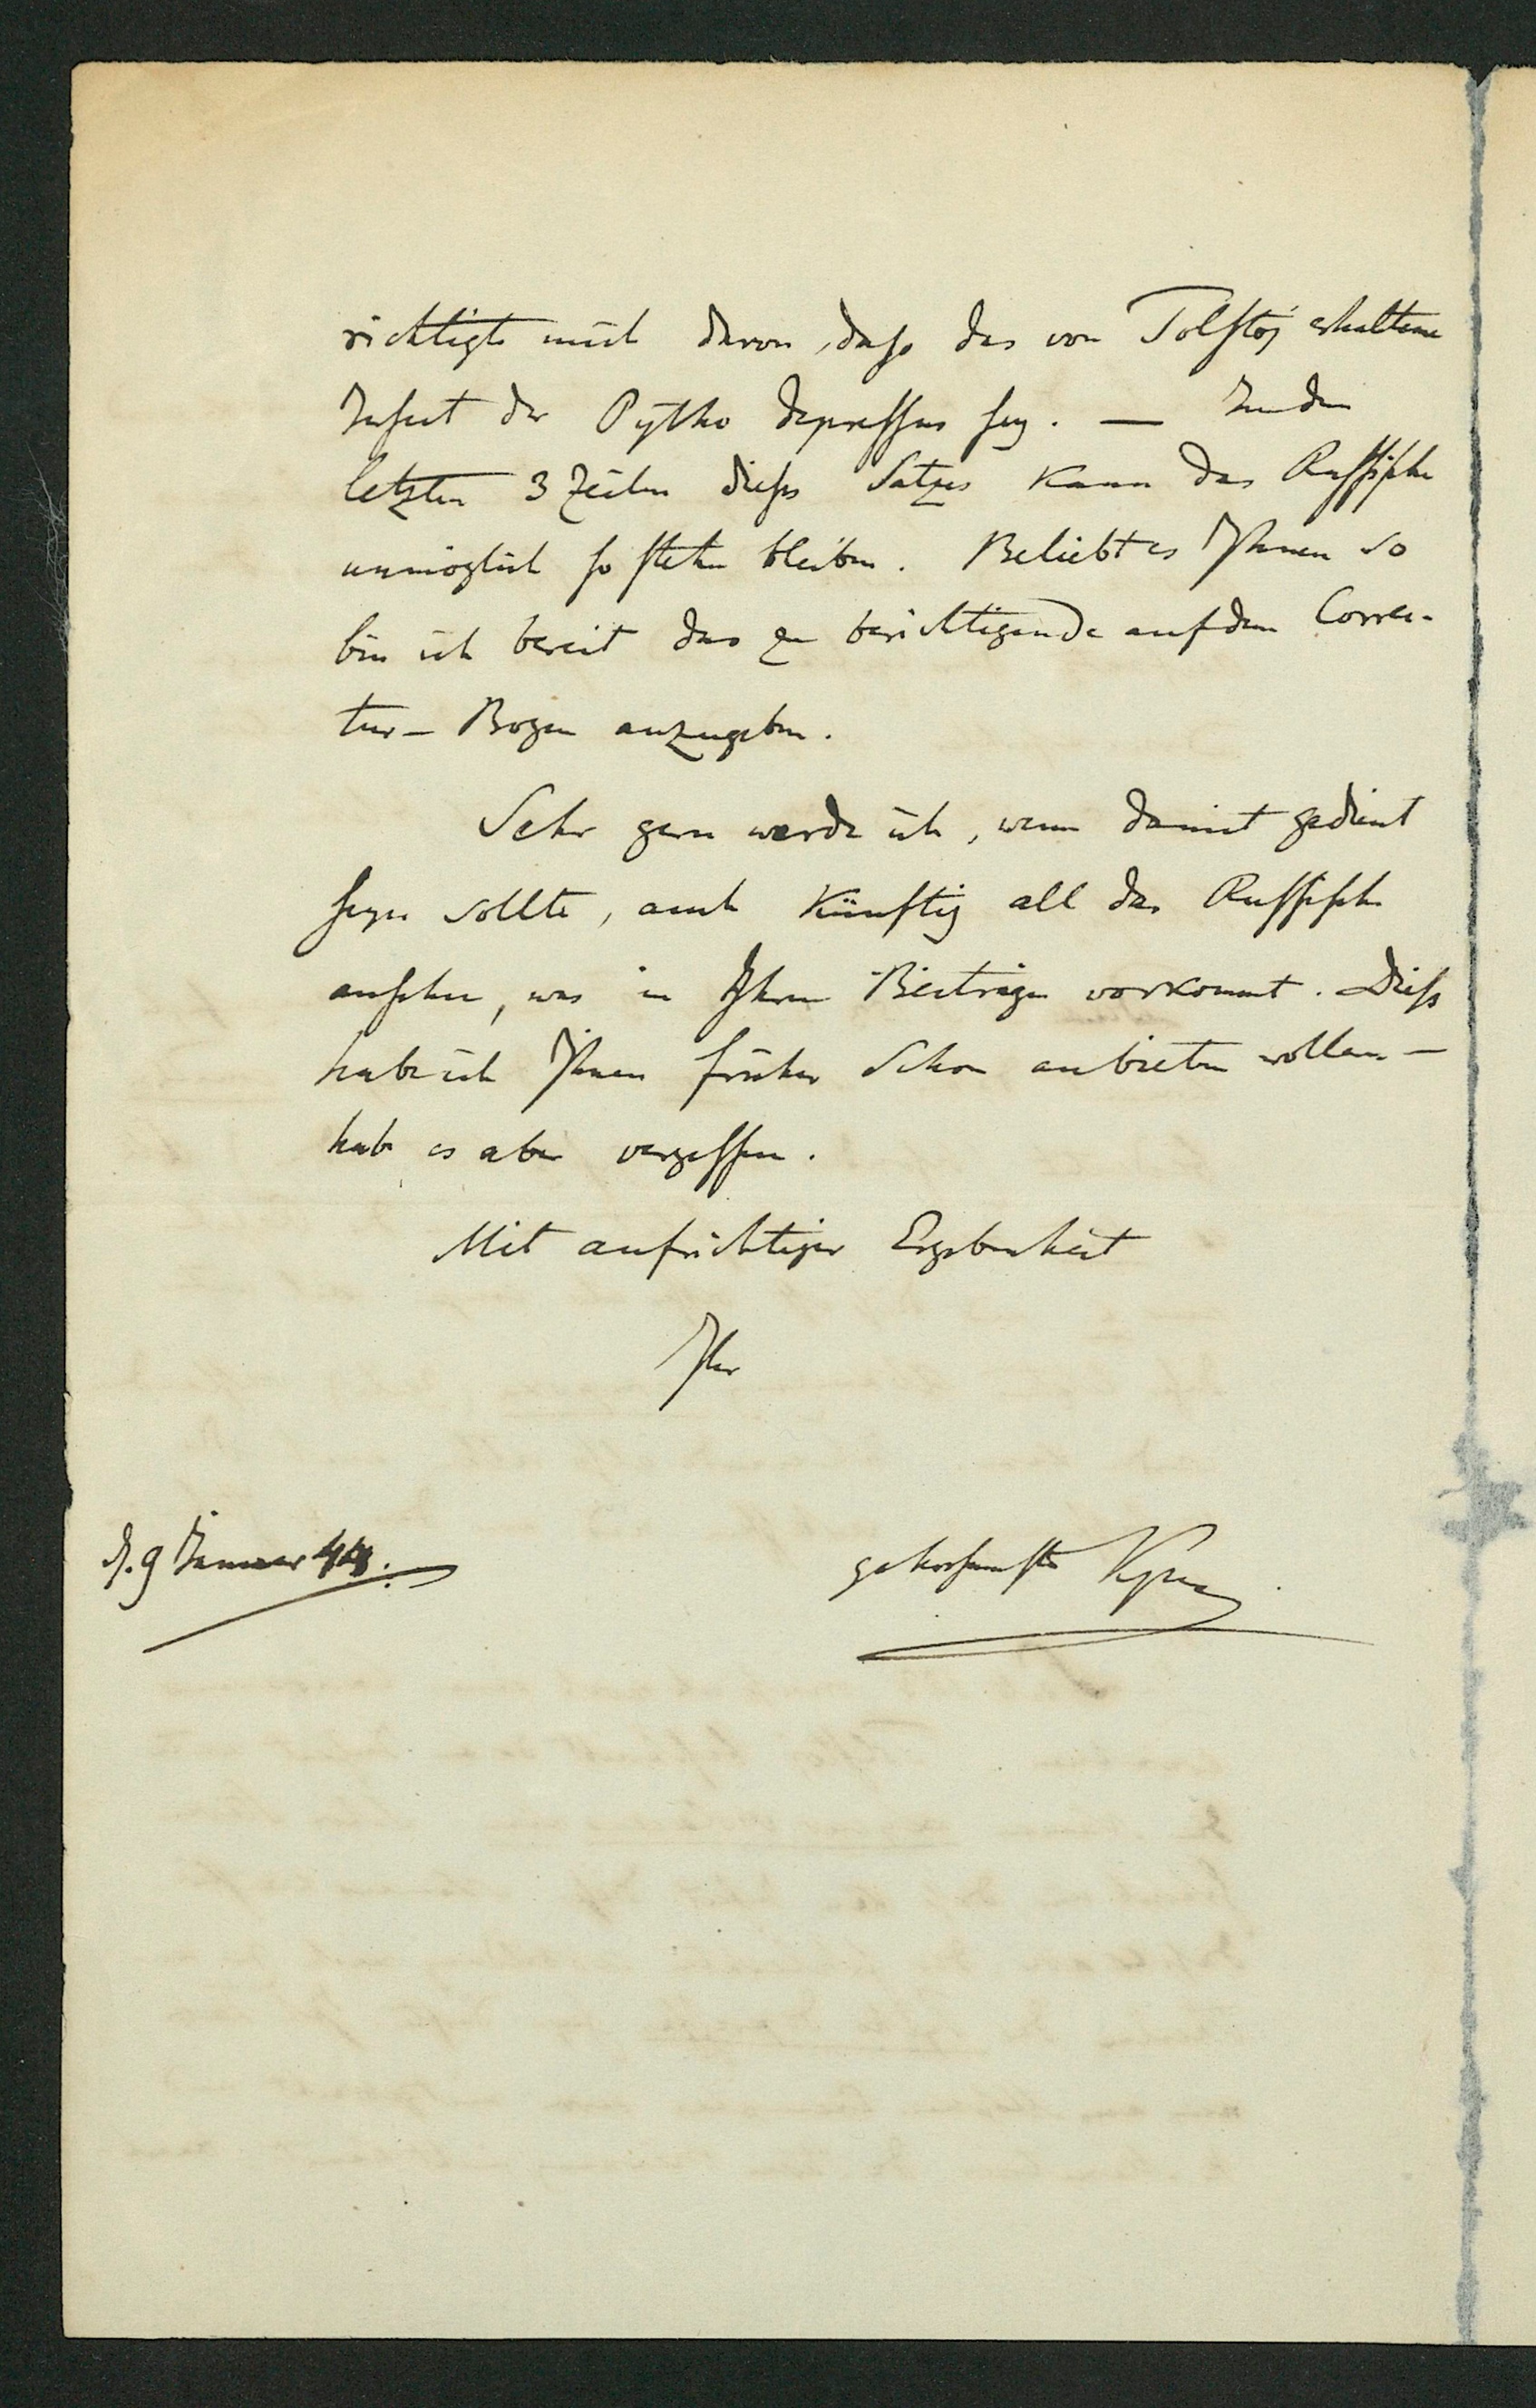 richtigte mich davon, daß das von Tolstoj erhaltene
Insect der Pytho depressus sey. — In den
letzten 3 Zeilen dieses Satzes kann das Russische
unmöglich so stehn bleiben. Beliebt es Ihnen so
bin ich bereit das zu berichtigende auf dem Correc-
tur- Bogen anzugeben.
Sehr gern werde ich, wenn damit gedient
seyn sollte, auch künftig all das Russische
ansehen, was in Ihren Beiträgen vorkommt. Dieß
habe ich Ihnen früher schon anbieten wollen —
hab es aber vergessen.
Mit aufrichtiger Ergebenheit
Ihr
d. 9 Januar
gehorsamster